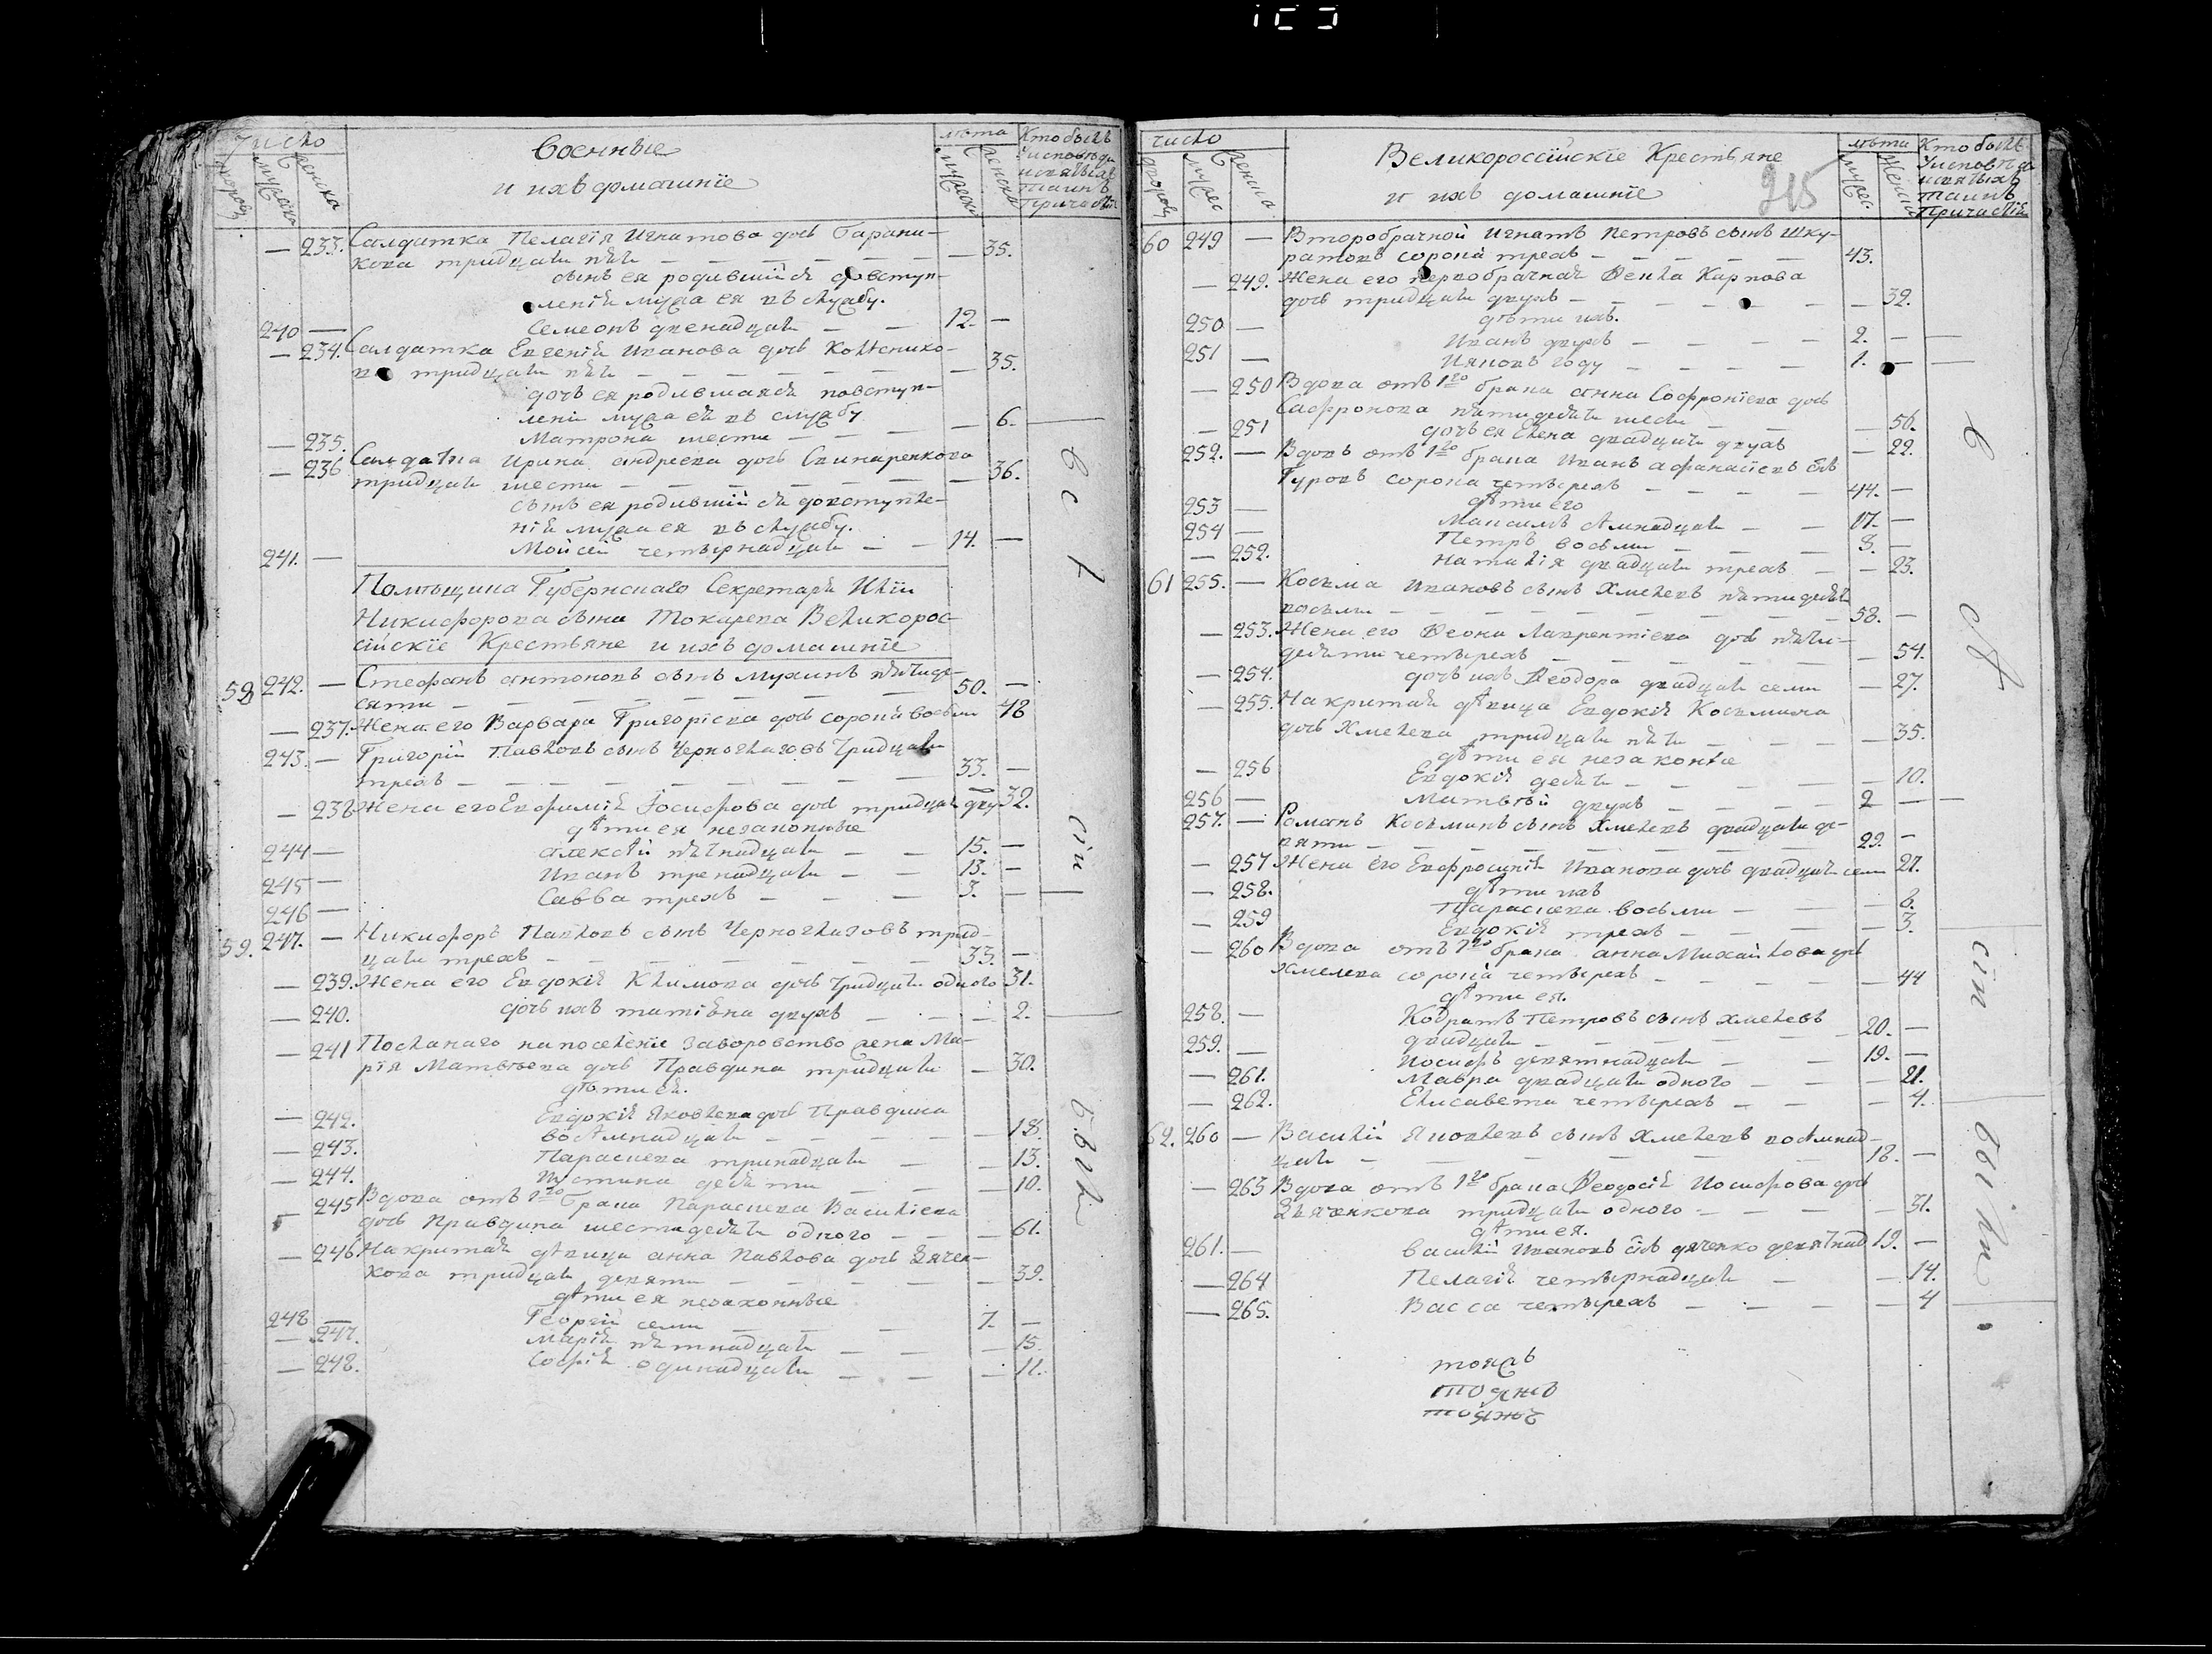 Число
дворовъ
мужска
женска
Военные
и ихъ домашнїе
лѣта
мужеска
женска
Кто былъ
у исповѣди
и святыхъ
таинъ
причастія
— 233. Салдатка Пелагїя Игнатова дочь Гарани-
кова тридцати пяти — 35.
сынъ ея родившійся до вступ-
ленія мужа ея въ службу.
240 — Семеонъ двенадцати — — 12. —
— 234. Салдатка Евгенія Иванова дочь Колеснико-
ва тридцати пяти — 35.
дочь ея родившаяся по вступ-
леніи мужа ея въ службу
— 235. Матрона шести — — 6.
— 236 Салдатка Ирина Андреева дочь Свинаренкова
тридцати шести — 36.
сынъ ея родившійся до вступле-
нія мужа ея въ службу.
241. — Мойсей четырнадцати — — 14. —
Помѣщика Губернскаго Секретаря Иліи
Никифорова сына Токарева Великорос-
сійскїе Крестьяне и ихъ домашнїе
58 242. — Стефанъ Антоновъ сынъ Мухинъ пятиде-
сяти — 50. —
— 237. Жена его Варвара Григорїева дочь сорока восьми 48
243. — Григорій Павловъ сынъ Черноглазовъ тридцати
трехъ — 33. —
— 238 Жена его Евфимія Іосифова дочь тридцати двух 32.
дѣти ея незаконные
244 — Алексѣй пятнадцати — — 15. —
245 — Иванъ тренадцати — — 13. —
246 — Савва трехъ — — 3. —
59. 247. — Никифоръ Павловъ сынъ Черноглазовъ трид-
цати трехъ — 33. —
— 239. Жена его Евдокія Климова дочь тридцати одного 31.
— 240. дочь ихъ Татіяна двухъ — 2.
— 241 Посланаго на поселенїе за воровство жена Ма-
рїя Матвѣева дочь Правдина тридцати — 30.
дѣти ея.
— 242. Евдокія Яковлева дочь Правдина
восѣмнадцати — 18.
— 243. Параскева тринадцати — 13.
— 244. Устина десяти — 10.
— 245 Вдова отъ 1го брака Параскева Василїева
дочь Правдина шестидесяти одного — 61.
— 246. Накритая дѣвица Анна Павлова дочь Дячен-
кова тридцати девяти — 39.
дѣти ея незаконные
248 — Георгій семи — 7. —
— 247. Марія пятнадцати — 15.
— 248. Софія одинадцати — 11.
всѣ
сіи
были
число
дворовъ
мужеск
женска
Великороссїйскїе Крестьяне
и ихъ домашнїе
215
лѣта
мужес.
женска
Кто былъ
У исповѣди
и святыхъ
таинъ
Причастія
60 249 — Второбрачной Игнатъ Петровъ сынъ Шку-
ратовъ сорока трехъ — 43.
— 249. Жена его первобрачная Фекла Карпова
дочь тридцати двухъ — 32.
дѣти ихъ.
250 — Иванъ двухъ — 2. —
251 — Іяковъ году — 1. —
— 250 Вдова отъ 1го брака Анна Софронїева дочь
Сафронова пятидесяти шести — 56.
— 251 дочь ея Елена двадцати двухъ — 22.
252. — Вдовъ отъ 1го брака Иванъ Афанасїевъ сынъ
Гуровъ сорока четырехъ — 44. —
дѣти его
253 — Максимъ семнадцати — 17. —
254 — Петръ восьми — 8. —
— 252. Наталїя двадцати трехъ — 23.
61 255. — Косьма Ивановъ сынъ Хмелевъ пятидесяти
восьми — 58. —
— 253. Жена его Феона Лаврентїева дочь пяти-
десяти четырехъ — 54.
— 254. дочь ихъ Феодора двадцати семи — 27.
— 255. Накритая дѣвица Евдокія Косьмина
дочь Хмелева тридцати пяти — 35.
дѣти ея незаконные
— 256 Евдокія десяти — 10.
256 — Матвѣй двухъ — 2 —
257. — Романъ Косьминъ сынъ Хмелевъ двадцати де-
вяти — 29. —
— 257 Жена его Евфросинія Иванова дочь двадцати семи 27.
дѣти ихъ
— 258. Параскева восьми — 8.
— 259 Евдокія трехъ — 3.
— 260 Вдова отъ 1го брака Анна Михайлова дочь
Хмелева сорока четырехъ — 44
дѣти ея.
258. — Кодратъ Петровъ сынъ Хмелевъ
двадцати — 20. —
259. — Иосифъ девятнадцати — 19. —
— 261. Мавра двадцати одного — 21.
— 262. Елисавета четырехъ — 4.
62. 260 — Василій Яковлевъ сынъ Хмелевъ восѣмнад-
цати — 18. —
— 263 Вдова отъ 1го брака Феодосія Иосифова дочь
Дяченкова тридцати одного — 31.
дѣти ея.
261. — Василій Ивановъ сынъ Дяченко девятнад 19. —
— 264 Пелагія четырнадцати — 14.
— 265. Васса четырехъ — 4
всѣ
сіи
были
тояжъ